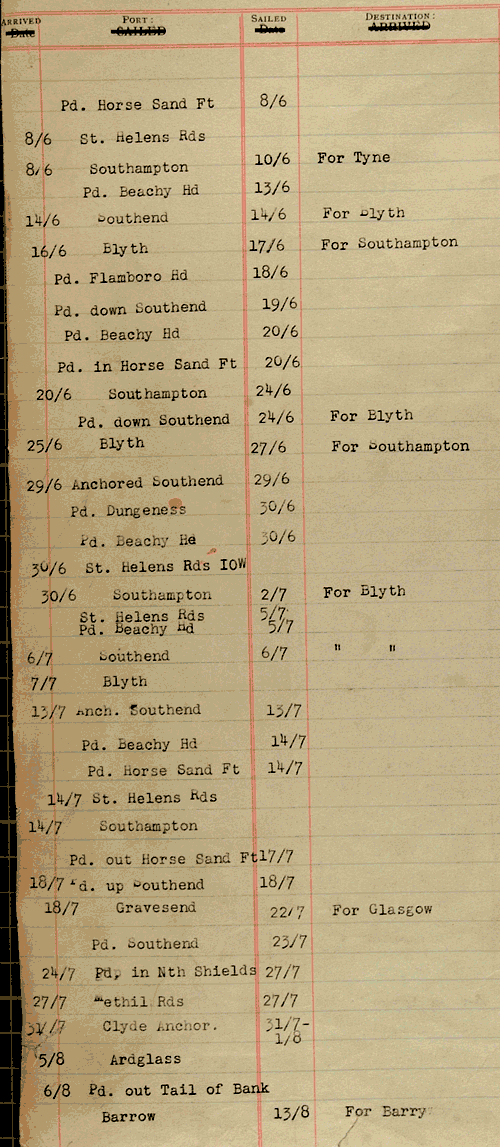 ARRIVED PORT: SAILED DESTINATION:
Date SAILED Date ARRIVED
Pd. Horse Sand Ft 8/6
8/6 St. Helens Rds
8/6 Southampton 10/6 For Tyne
Pd. Beachy Hd 13/6
14/6 Southend 14/6 For Blyth
16/6 Blyth 17/6 For Southampton
Pd. Flamboro Hd 18/6
Pd. down Southend 19/6
Pd. Beachy Hd 20/6
Pd. in Horse Sand Ft 20/6
20/6 Southampton 24/6
Pd. down Southend 24/6 For Blyth
25/6 Blyth 27/6 For Southampton
29/6 Anchored Southend 29/6
Pd. Dungeness 30/6
Pd. Beachy Hd 30/6
30/6 St. Helens Rds IOW
30/6 Southampton 2/7 For Blyth
St. Helens Rds 5/7
Pd. Beachy Hd 5/7
6/7 Southend 6/7 " "
7/7 Blyth
13/7 Anch. Southend 13/7
Pd. Beachy Hd 14/7
Pd. Horse Sand Ft 14/7
14/7 St. Helens Rds
14/7 Southampton
Pd. out Horse Sand Ft 17/7
18/7 Pd. up Southend 18/7
18/7 Gravesend 22/7 For Glasgow
Pd. Southend 23/7
24/7 Pd, in Nth Shields 27/7
27/7 Methil Rds 27/7
31/7 Clyde Anchor. 31/7-
1/8
5/8 Ardglass
6/8 Pd. out Tail of Bank
Barrow 13/8 For Barry